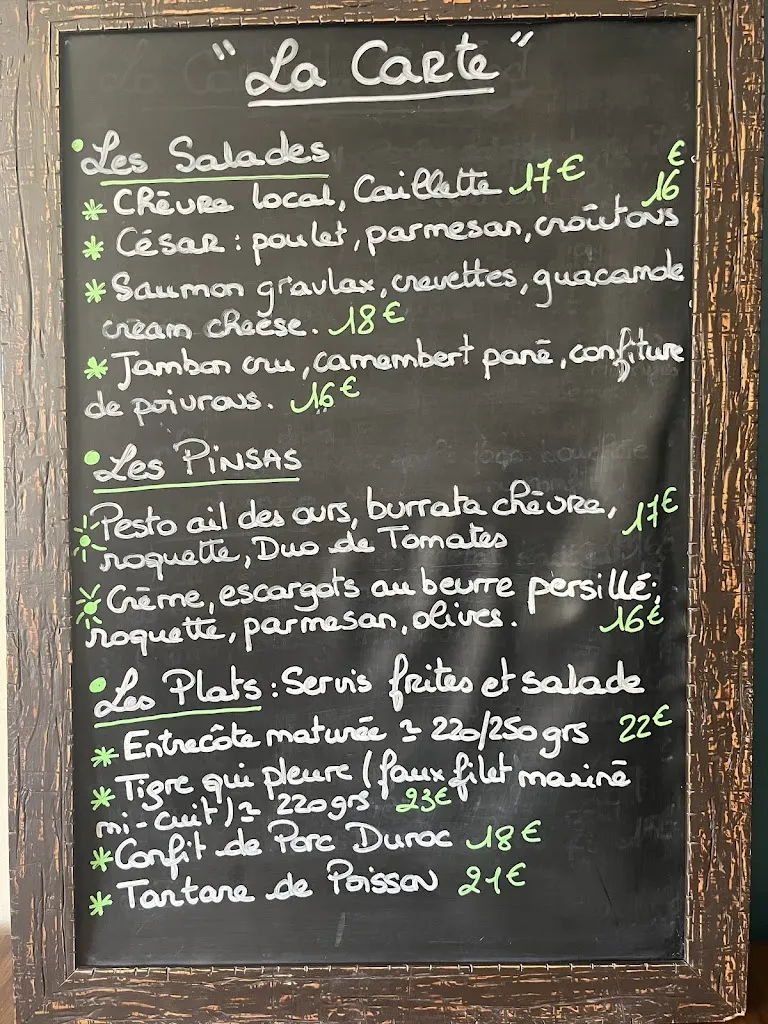 "La Carte"
• Les Salades
* Chèvre local, Caillette 17€
€
16
* César : poulet, parmesan, croûtons
* Saumon gravlax, crevettes, guacamole
cream cheese. 18€
* Jambon cru, camembert pané, confiture
de poivrons. 16€
• Les Pinsas
Pesto ail des ours, burrata chèvre, 17€
roquette, Duo de Tomates
Crème, escargots au beurre persillé,
roquette, parmesan, olives. 16€
• Les Plats : Servis frites et salade
* Entrecôte maturée ≃ 220/250 grs 22€
* Tigre qui pleure (faux filet mariné
mi-cuit) ≃ 220grs 23€
* Confit de Porc Duroc 18€
* Tartare de Poisson 21€